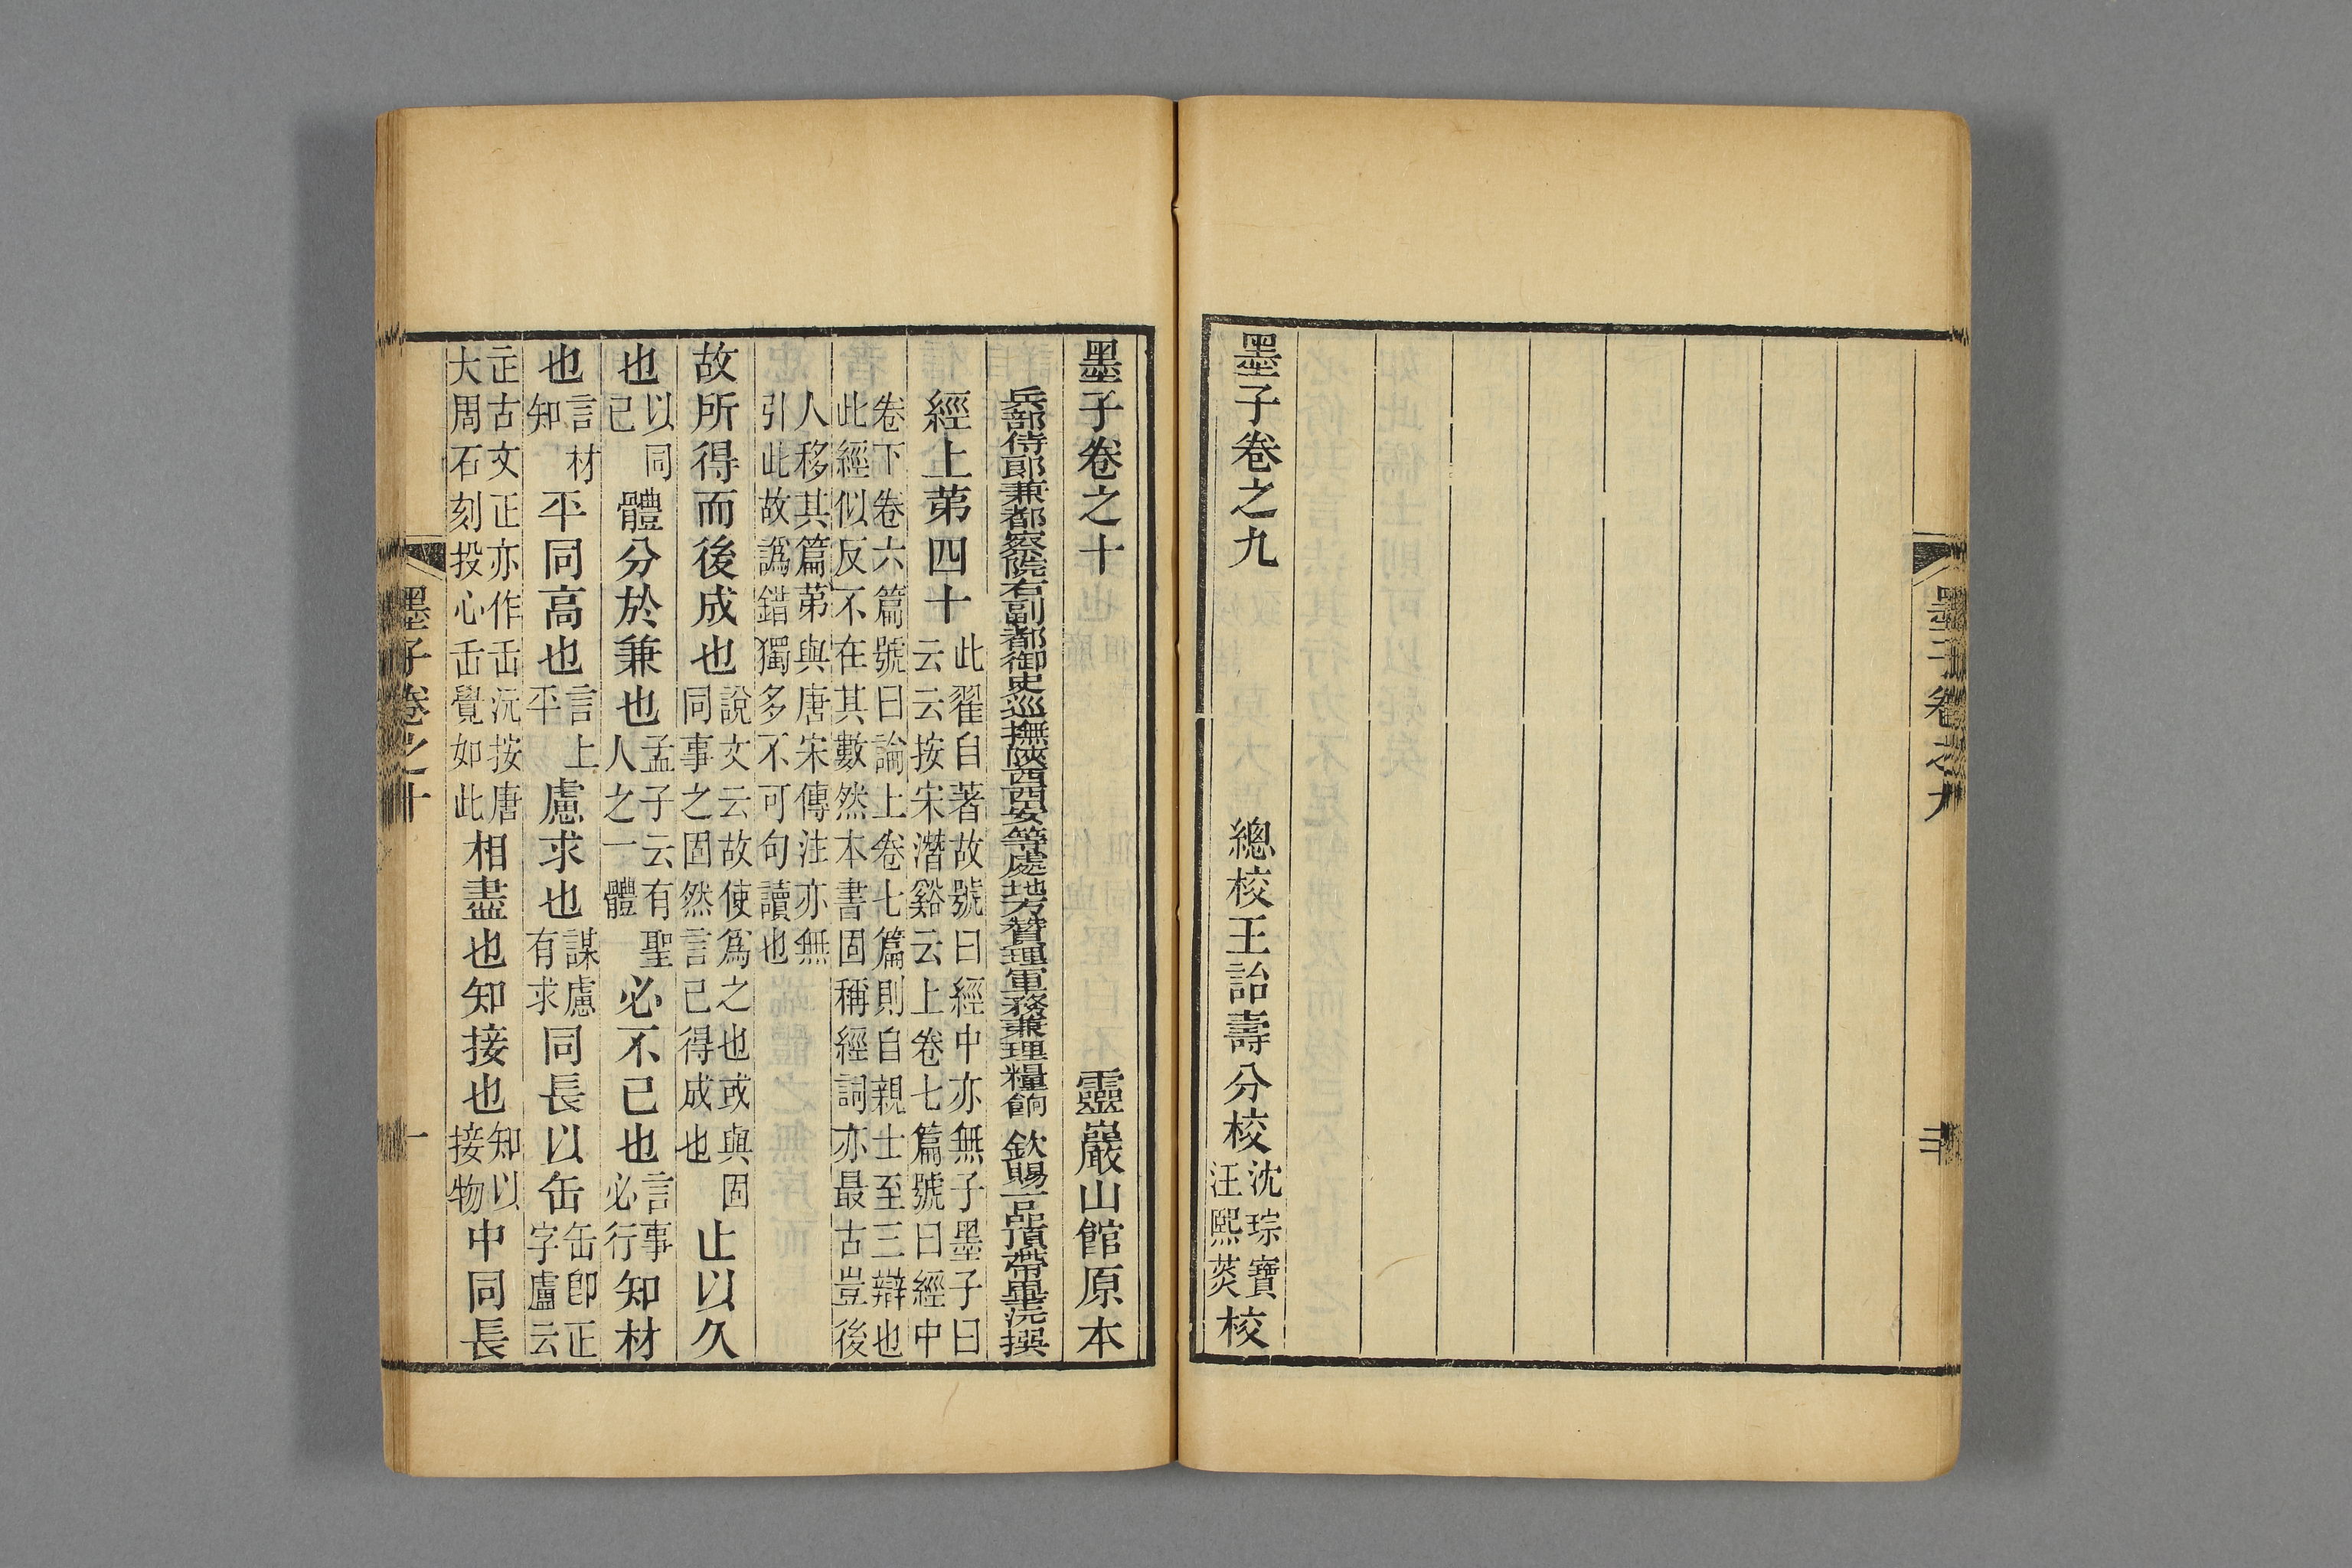 墨子卷之九
墨子卷之九　總校王詒壽分校沈琮寶汪熙校
墨子卷之十　靈巖山館原本
兵部侍郎兼都察院右副都御史巡撫陝西西安等處地方贊理軍務兼理糧餉　欽賜一品頂帶畢沅撰
經上第四十此翟自著故號曰經中亦無子墨子曰云云按宋潛谿云上卷七篇號曰經中
卷下卷六篇號曰論上卷七篇則自親士至三辯也此經似反不在其數然本書固稱經詞亦最古豈後
人移其篇第與唐宋傳注亦無引此故譌錯獨多不可句讀也
故所得而後成也說文云故使爲之也或與固同事之固然言已得成也止以久
也以同已體分於兼也孟子云有聖人之一體必不已也言事必行知材
也言材知平同高也言上平慮求也謀慮有求同長以缶缶卽正字盧云
正古文正亦作缶沅按唐大周石刻投心缶覺如此相盡也知接也知以接物中同長
墨子卷之十　一